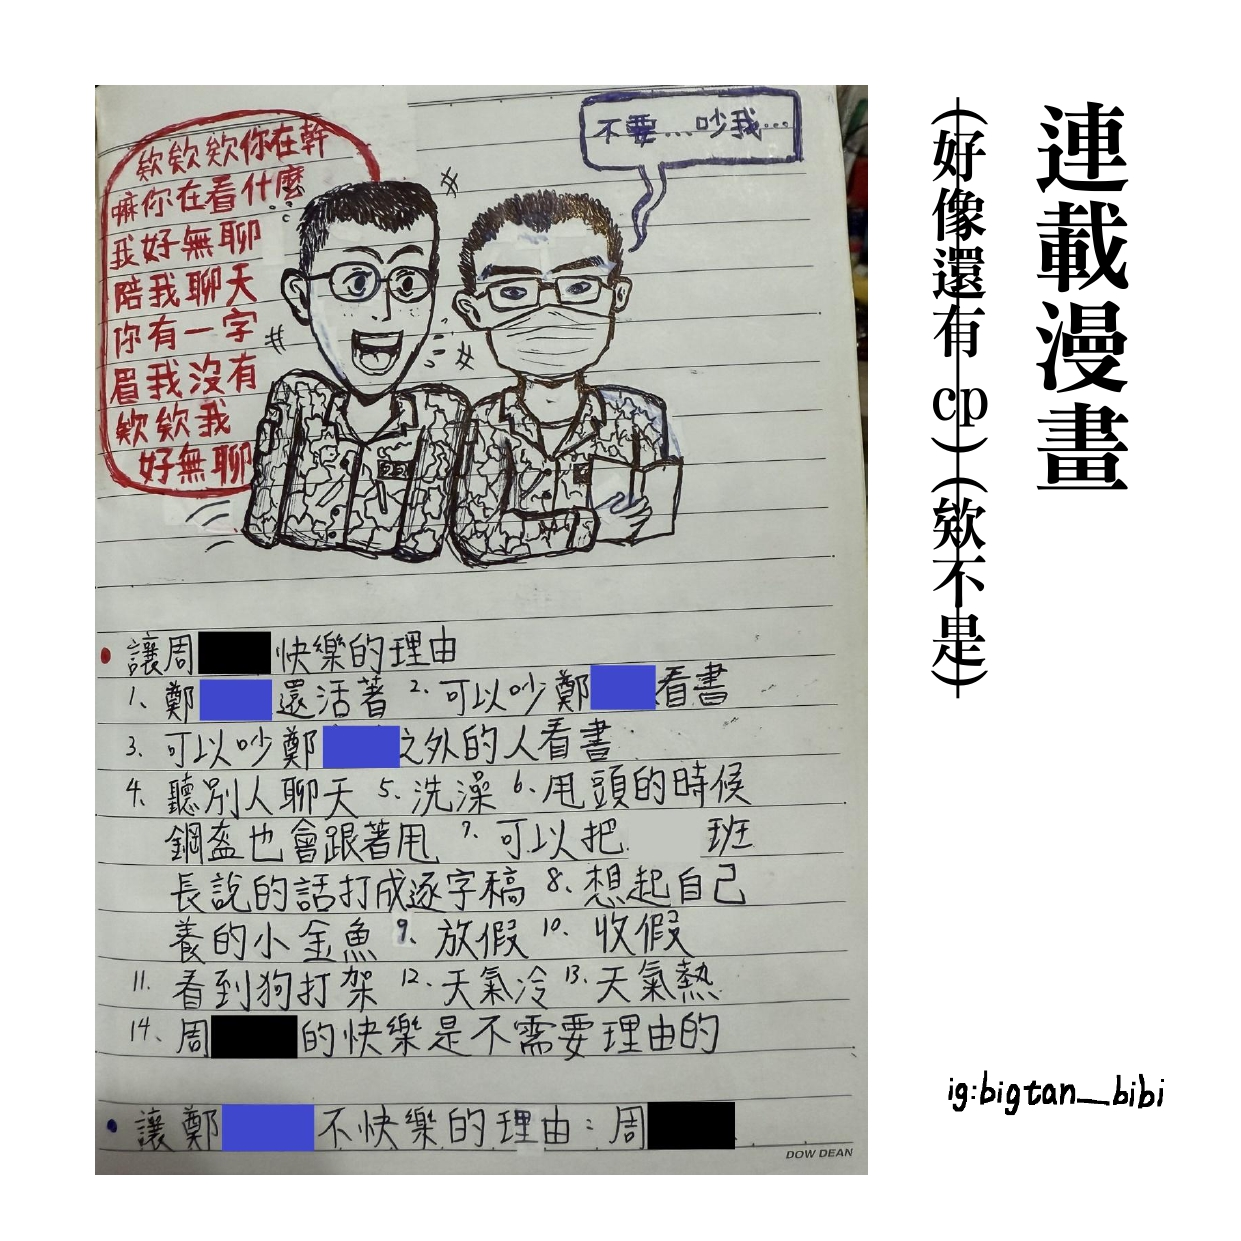 連載漫畫
(好像還有cp)(欸不是)
欸欸欸你在幹
嘛你在看什麼
我好無聊
陪我聊天
你有一字
眉我沒有
欸欸我
好無聊
不要...吵我...
讓周 快樂的理由
1、鄭 還活著 2、可以吵鄭 看書
3、可以吵鄭 之外的人看書
4、聽別人聊天 5、洗澡 6、甩頭的時候
鋼盔也會跟著甩 7、可以把 班
長說的話打成逐字稿 8、想起自己
養的小金魚 9、放假 10、收假
11、看到狗打架 12、天氣冷 13、天氣熱
14、周 的快樂是不需要理由的
讓鄭 不快樂的理由：周
DOW DEAN
ig:bigtan__bibi